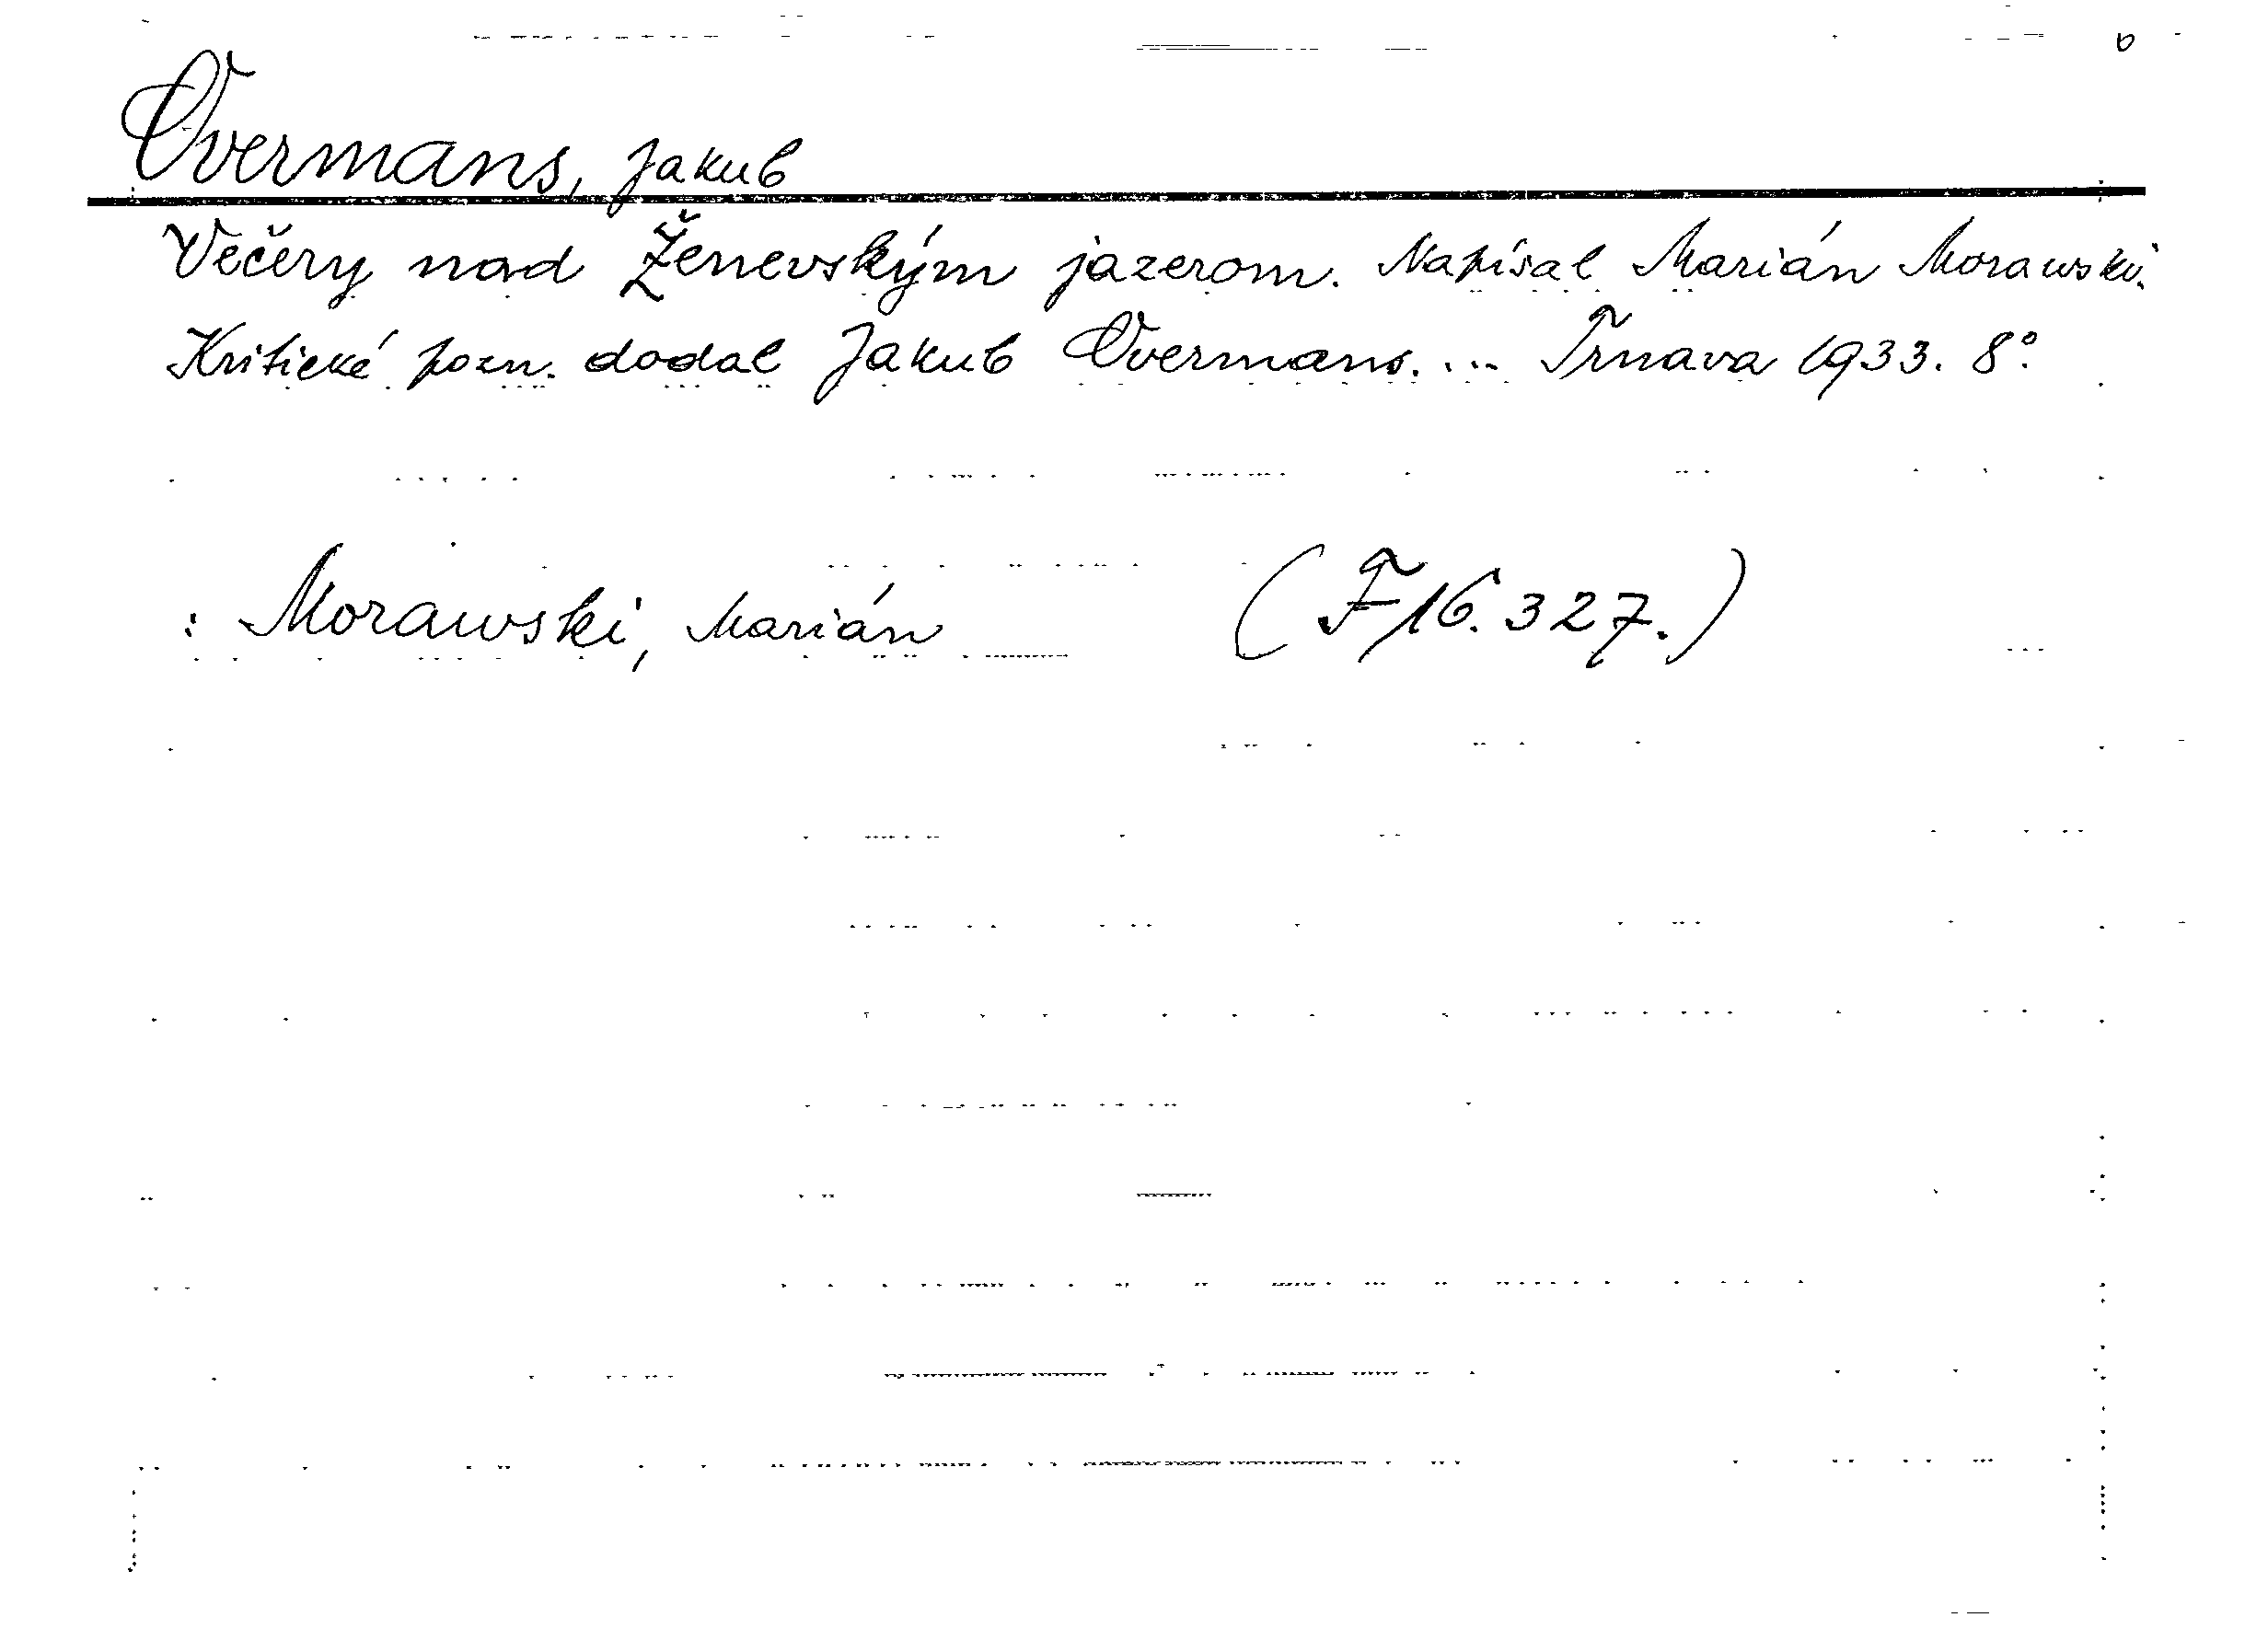 Overmans, Jakub
Večery nad Ženevským jazerom. Napísal Marián Morawski.
Kritické pozn. dodal Jakub Overmans. ... Trnava 1933. 8°.
: Morawski, Marián (F 16.327.)